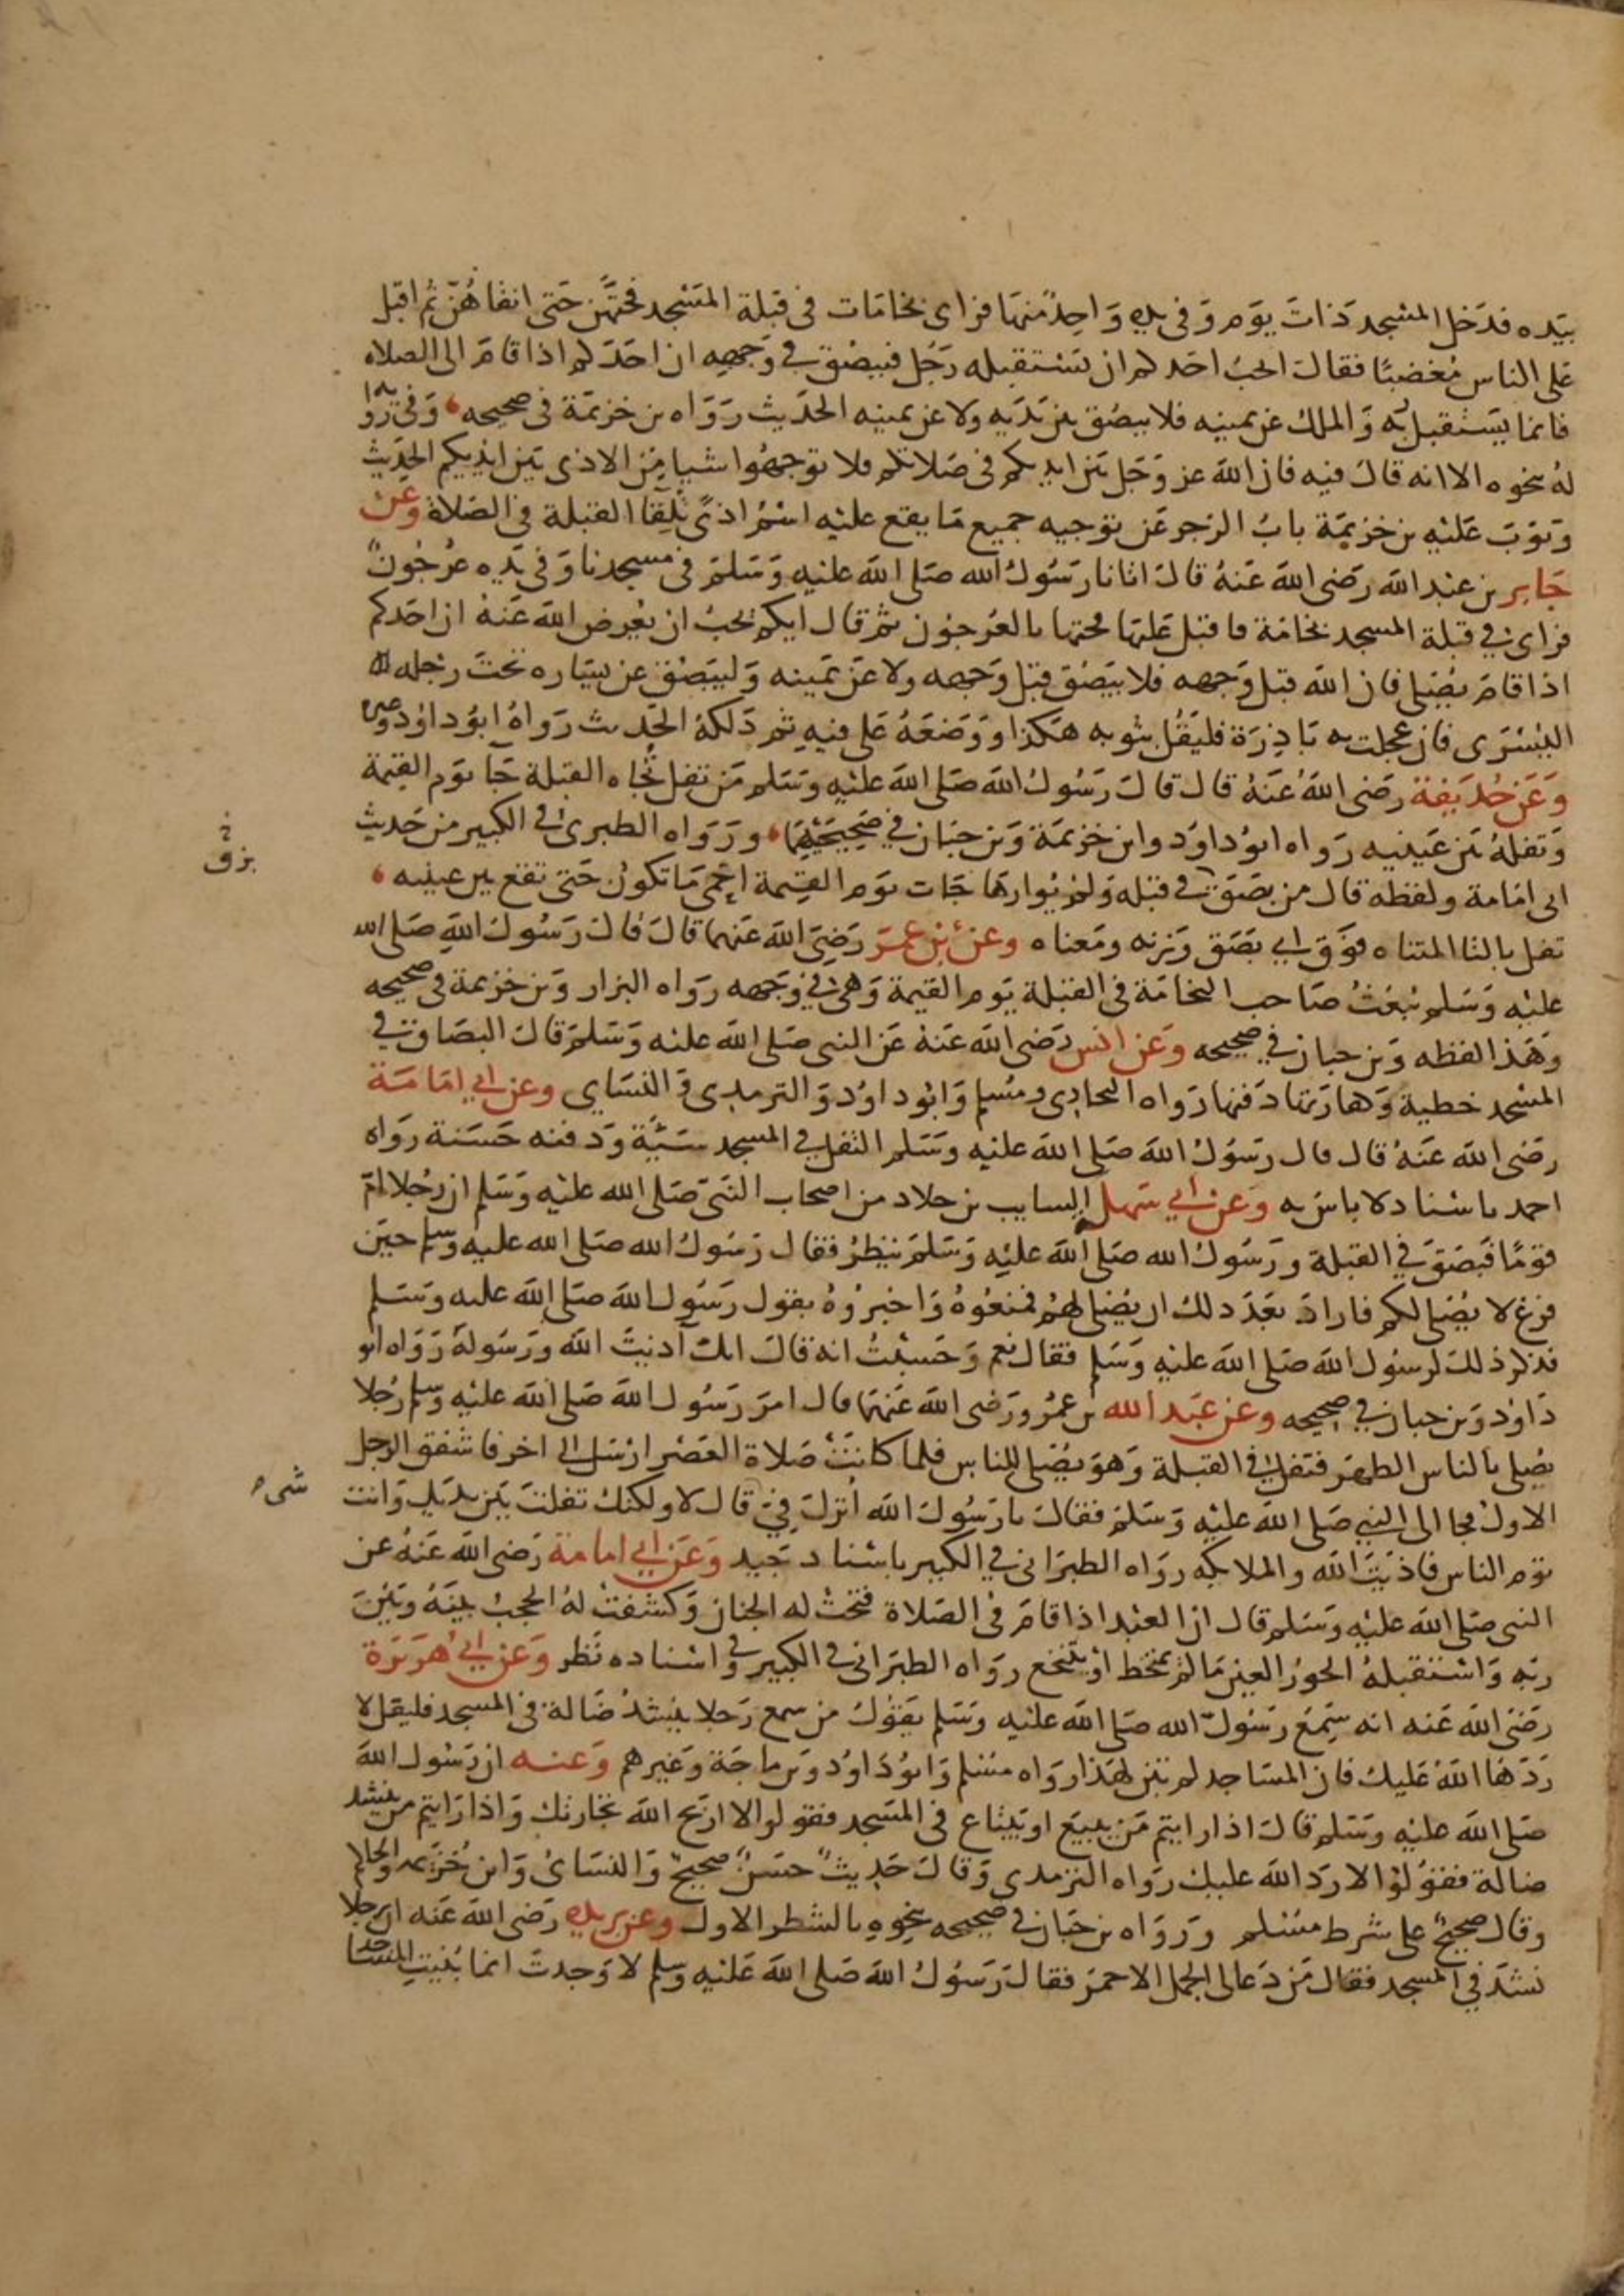 بيده فدخل المسجد ذات يوم وفي يده واحد منها فراى نخامات في قبلة المسجد فحتهن حتى انقاهن ثم اقبل
على الناس مغضبا فقال ايحب احدكم ان يستقبله رجل فيبصق في وجهه ان احدكم اذا قام الى الصلاه
فانما يستقبل ربه والملك عن يمينه فلا يبصق بين يديه ولا عن يمينه الحديث رواه بن خزيمة في صحيحه وفي رواية
له بنحوه الا انه قال فيه فان الله عز وجل بين ايديكم في صلاتكم فلا توجهوا شيا من الاذى بين ايديكم الحديث
وبوب عليه بن خزيمة باب الزجر عن توجيه جميع ما يقع عليه اسم اذى تلقا القبلة في الصلاة وعن
جابر بن عبد الله رضي الله عنه قال اتانا رسول الله صلى الله عليه وسلم في مسجدنا وفي يده عرجون
فراى في قبلة المسجد نخامة فاقبل عليها فحتها بالعرجون ثم قال ايكم يحب ان يعرض الله عنه ان احدكم
اذا قام يصلي فان الله قبل وجهه فلا يبصق قبل وجهه ولا عن يمينه وليبصق عن يساره تحت رجله
اليسرى فان عجلت به بادرة فليقل بثوبه هكذا ووضعه على فيه ثم دلكه الحديث رواه ابو داود وغيره
وعن حذيفة رضي الله عنه قال قال رسول الله صلى الله عليه وسلم من تفل تجاه القبلة جا يوم القيمة
وتفله بين عينيه رواه ابو داود وابن خزيمة وبن حبان في صحيحيهما ورواه الطبري في الكبير من حديث
بزق
ابى امامة ولفظه قال من بصق في قبله ولم يوارها جات يوم القيمة احمى ما تكون حتى تقع بين عينيه
تفل بالتا المتناه فوق اي بصق وزنه ومعناه وعن بن عمر رضي الله عنهما قال قال رسول الله صلى الله
عليه وسلم يبعث صاحب النخامة في القبلة يوم القيمة وهي في وجهه رواه البزار وبن خزيمة في صحيحه
وهذا لفظه وبن حبان في صحيحه وعن انس رضي الله عنه عن النبي صلى الله عليه وسلم قال البصاق في
المسجد خطية وكفارتها دفنها رواه البخاري ومسلم وابو داود والترمدي والنساي وعن ابي امامة
رضي الله عنه قال قال رسول الله صلى الله عليه وسلم التفل في المسجد سيئة ودفنه حسنة رواه
احمد باسناد لا باس به وعن ابي سهل السايب بن خلاد من اصحاب النبي صلى الله عليه وسلم ان رجلا ام
قوما فبصق في القبلة ورسول الله صلى الله عليه وسلم ينظر فقال رسول الله صلى الله عليه وسلم حين
فرغ لا يصلي لكم فاراد بعد ذلك ان يصلي لهم فمنعوه واخبروه بقول رسول الله صلى الله عليه وسلم
فذكر ذلك لرسول الله صلى الله عليه وسلم فقال نعم وحسبت انه قال انك آذيت الله ورسوله رواه ابو
داود وبن حبان في صحيحه وعن عبد الله بن عمرو رضي الله عنهما قال امر رسول الله صلى الله عليه وسلم رجلا
يصلي بالناس الظهر فتفل في القبلة وهو يصلي للناس فلما كانت صلاة العصر ارسل الى اخر فاشفق الرجل
الاول فجا الى النبي صلى الله عليه وسلم فقال يا رسول الله انزل في قال لا ولكنك تفلت بين يديك وانت
توم الناس فاذيت الله والملايكه رواه الطبراني في الكبير باسناد جيد وعن ابي امامة رضي الله عنه عن
النبي صلى الله عليه وسلم قال ان العبد اذا قام في الصلاة فتحت له الجنان وكشفت له الحجب بينه وبين
ربه واستقبله الحور العين ما لم يمتخط او يتنخع رواه الطبراني في الكبير وفي اسناده نظر وعن ابي هريرة
رضي الله عنه انه سمع رسول الله صلى الله عليه وسلم يقول من سمع رجلا ينشد ضالة في المسجد فليقل لا
ردها الله عليك فان المساجد لم تبن لهذا رواه مسلم وابو داود وبن ماجة وغيرهم وعنه ان رسول الله
صلى الله عليه وسلم قال اذا رايتم من يبيع او يبتاع في المسجد فقولوا لا اربح الله تجارتك واذا رايتم من ينشد
ضالة فقولوا لا رد الله عليك رواه الترمدي وقال حديث حسن صحيح والنساى وابن خزيمه والحاكم
وقال صحيح على شرط مسلم ورواه بن حبان في صحيحه بنحوه بالشطر الاول وعن بريده رضي الله عنه ان رجلا
نشد في المسجد فقال من دعا الى الجمل الاحمر فقال رسول الله صلى الله عليه وسلم لا وجدت انما بنيت المساجد